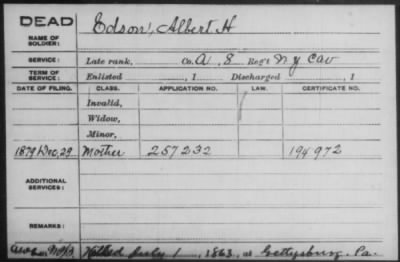 DEAD
NAME OF SOLDIER: Edson, Albert H
SERVICE: Late rank, Co. A, 8 Reg't N.Y. Cav
TERM OF SERVICE: Enlisted , 1 Discharged , 1
DATE OF FILING. CLASS. APPLICATION NO. LAW. CERTIFICATE NO.
Invalid,
Widow,
Minor,
1879 Dec, 29 Mother 257232 194972
ADDITIONAL SERVICES:
REMARKS:
Killed July 1, 1863, at Gettysburg, Pa.